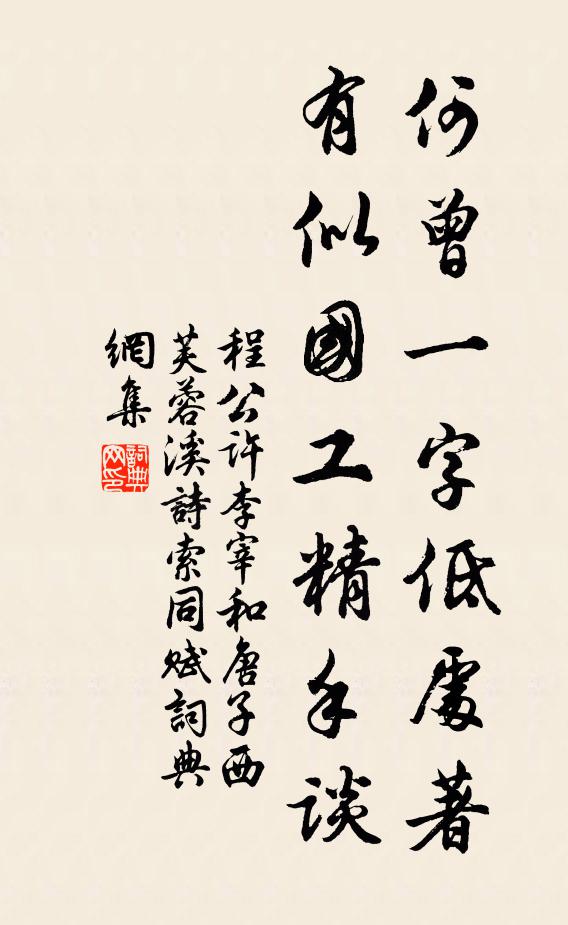 何曾一字低處著
有似國工精手談
程公許李宰和唐子西
芙蓉溪詩索同賦詞典
網集
詞典網印